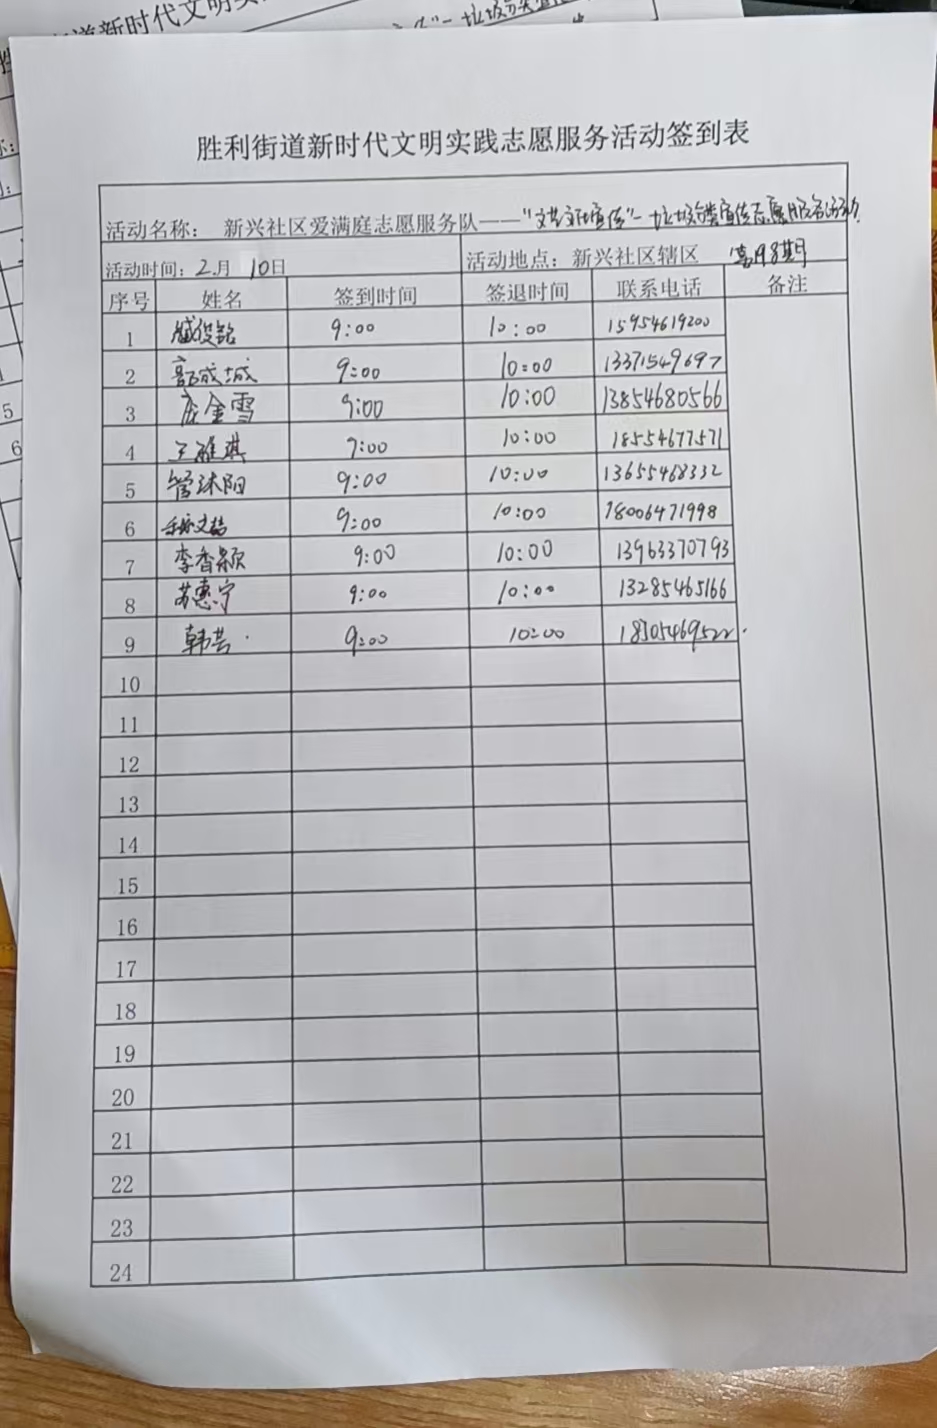 胜利街道新时代文明实践志愿服务活动签到表
活动名称： 新兴社区爱满庭志愿服务队——“文艺文化宣传”–垃圾分类宣传志愿服务活动
活动时间：2月 10日 活动地点：新兴社区辖区 第98期
序号 姓名 签到时间 签退时间 联系电话 备注
1 臧俊铭 9:00 10:00 15954619200
2 郭成城 9:00 10:00 13371549697
3 庞金雪 9:00 10:00 13854680566
4 王雅琪 9:00 10:00 18554677571
5 管沐阳 9:00 10:00 13655468332
6 9:00 10:00 18006471998
7 李香颖 9:00 10:00 13963370793
8 苏惠宁 9:00 10:00 13285465166
9 韩芸 9:00 10:00 18505469522
10
11
12
13
14
15
16
17
18
19
20
21
22
23
24